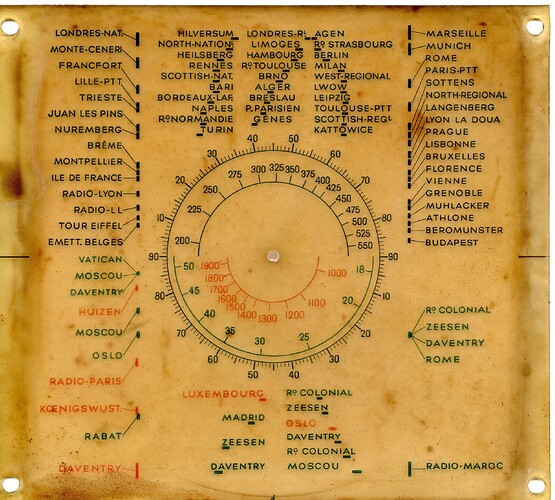 LONDRES-NAT.
MONTE-CENERI
FRANCFORT
LILLE-PTT
TRIESTE
JUAN LES PINS
NUREMBERG
BRÊME
MONTPELLIER
ILE DE FRANCE
RADIO-LYON
RADIO-LL
TOUR EIFFEL
EMETT. BELGES
VATICAN
MOSCOU
DAVENTRY
HUIZEN
MOSCOU
OSLO
RADIO-PARIS
KŒNIGSWUST.
RABAT
DAVENTRY
HILVERSUM LONDRES-RL AGEN
NORTH-NATION. LIMOGES Rº STRASBOURG
HEILSBERG HAMBOURG BERLIN
RENNES Rº TOULOUSE MILAN
SCOTTISH-NAT. BRNO WEST-REGIONAL
BARI ALGER LWOW
BORDEAUX-LAF. BRESLAU LEIPZIG
NAPLES P. PARISIEN TOULOUSE-PTT
Rº NORMANDIE GÊNES SCOTTISH-REGL
TURIN KATTOWICE
MARSEILLE
MUNICH
ROME
PARIS-PTT
SOTTENS
NORTH-REGIONAL
LANGENBERG
LYON LA DOUA
PRAGUE
LISBONNE
BRUXELLES
FLORENCE
VIENNE
GRENOBLE
MUHLACKER
ATHLONE
BEROMUNSTER
BUDAPEST
Rº COLONIAL
ZEESEN
DAVENTRY
ROME
RADIO-MAROC
10 20 30 40 50 60 70 80 90
200 225 250 275 300 325 350 375 400 425 450 475 500 525 550
1900 1800 1700 1600 1500 1400 1300 1200 1100 1000
50 45 40 35 30 25 20 18
90 80 70 60 50 40 30 20 10
LUXEMBOURG Rº COLONIAL
ZEESEN
MADRID OSLO
ZEESEN DAVENTRY
Rº COLONIAL
DAVENTRY MOSCOU